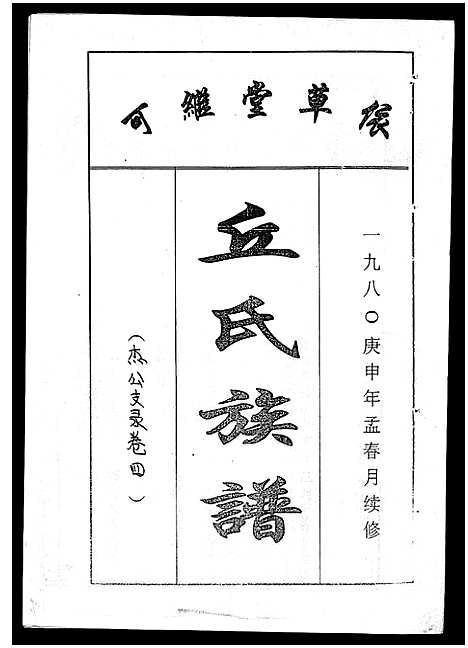 草堂維
一九八〇庚申年孟春月续修
丘氏族譜
（杰公支录卷四）